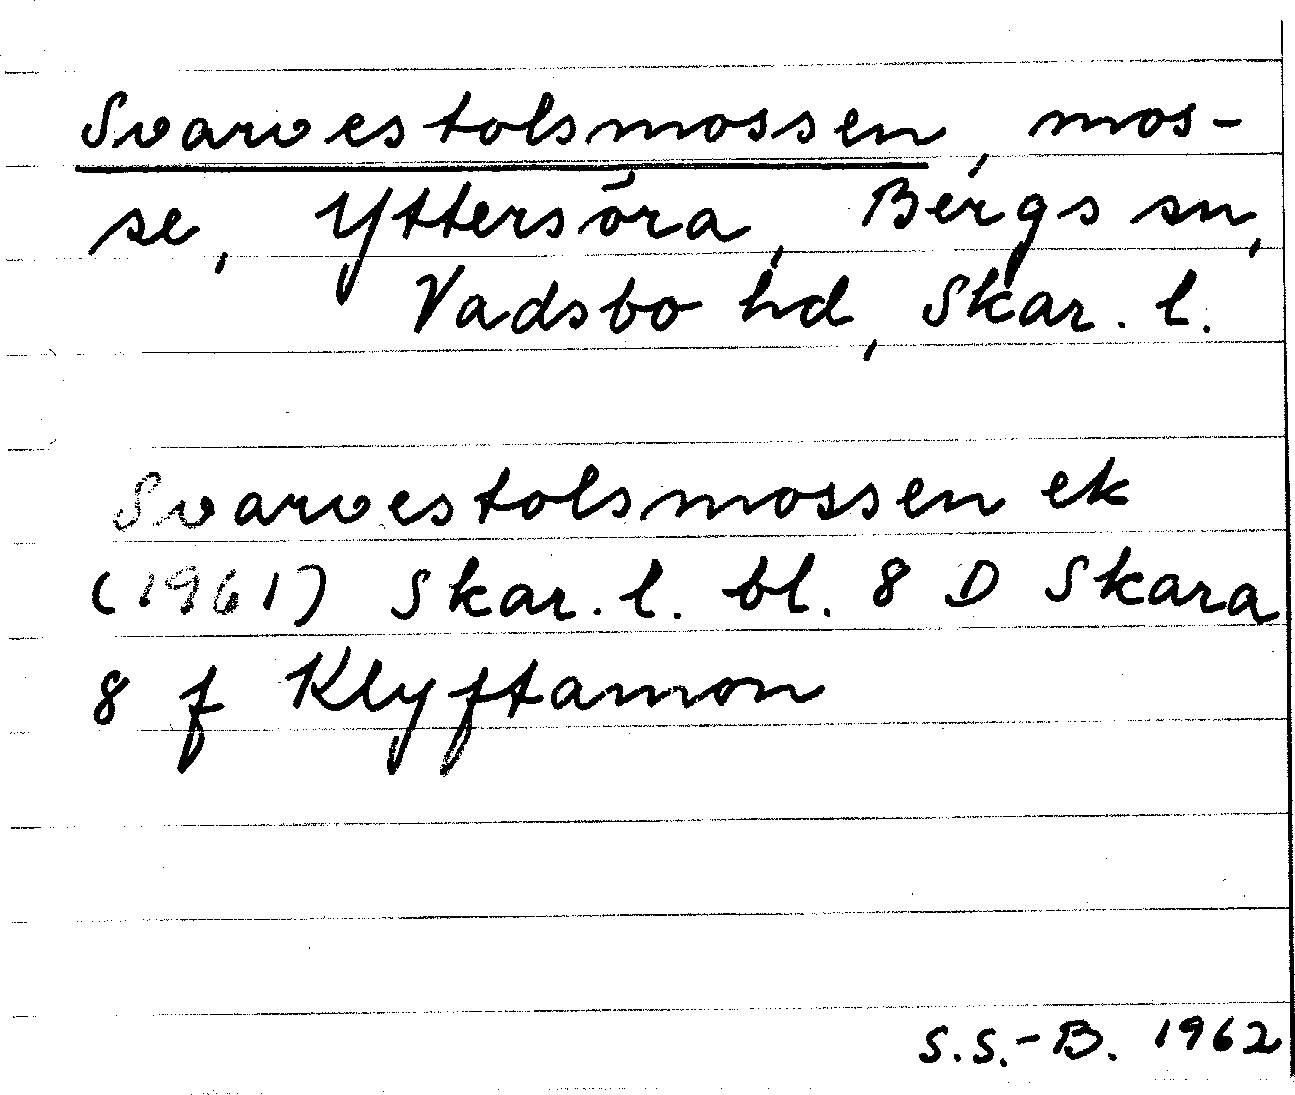 Svarvestolsmossen, mos-
se, Yttersöra, Bergs sn,
Vadsbo hd, Skar. l.
Svarvestolsmossen ek
(1961) Skar. l. bl. 8 D Skara
8 f Klyftamon
S.S.-B. 1962